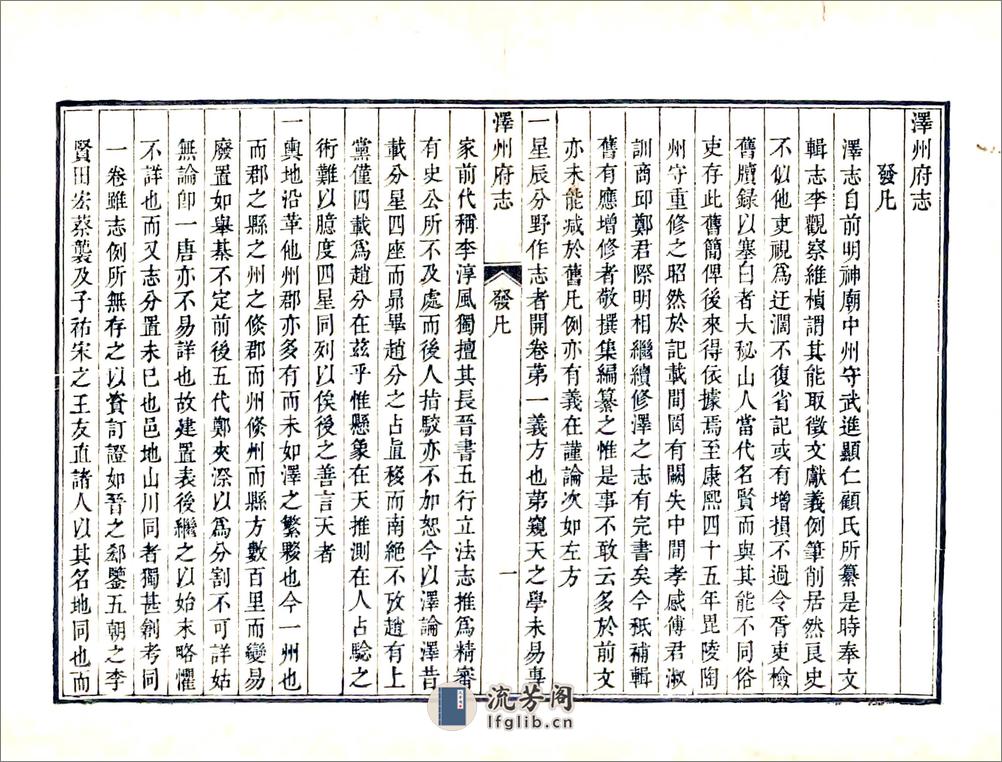 澤州府志
發凡
澤志自前明神廟中州守武進顯仁顧氏所纂是時奉文
輯志李觀察維楨謂其能取徵文獻義例筆削居然良史
不似他吏視為迂濶不復省記或有增損不過令胥吏檢
舊牘録以塞白者大秘山人當代名賢而與其能不同俗
吏存此舊簡俾後來得依據焉至康熙四十五年毘陵陶
州守重修之昭然於記載間罔有闕失中間孝感傅君淑
訓商邱鄭君際明相繼續修澤之志有完書矣今祇補輯
舊有應增修者敬撰集編纂之惟是事不敢云多於前文
亦未能減於舊凡例亦有義在謹論次如左方
一星辰分野作志者開卷苐一義方也第窺天之學未易專
澤州府志
發凡
一
家前代稱李淳風獨擅其長晉書五行立法志推為精審
有史公所不及處而後人指駮亦不加恕今以澤論澤昔
載分星四座而昴畢趙分之占直移而南絕不攷趙有上
黨僅四載為趙分在茲乎惟懸象在天推測在人占騐之
術難以臆度四星同列以俟後之善言天者
一輿地沿革他州郡亦多有而未如澤之繁夥也今一州也
而郡之縣之州之倐郡而州倐州而縣方數百里而變易
廢置如舉棊不定前後五代鄭夾漈以為分割不可詳姑
無論卽一唐亦不易詳也故建置表後繼之以始末略懼
不詳也而又志分置未巳也邑地山川同者獨甚創考同
一卷雖志例所無存之以資訂證如晉之郄鑒五朝之李
賢田宏蔡襲及子祐宋之王友直諸人以其名地同也而
流芳阁
lfglib.cn